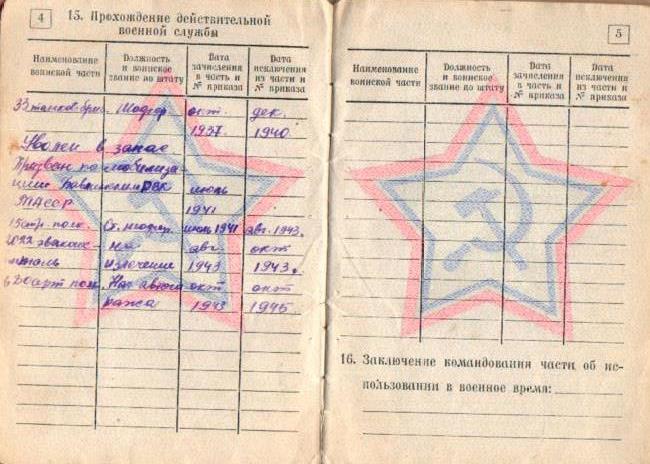 4
15. Прохождение действительной
военной службы
Наименование воинской части
Должность и воинское звание по штату
Дата зачисления в часть и № приказа
Дата исключения из части и № приказа
33 танков. бриг. Шофер окт. дек.
1937 1940
Уволен в запас
Призван по мобилиза-
ции Бавлинским РВК июль
ТАССР 1941
15 стр. полк. Ст. шофер июль 1941 авг. 1943.
1022 эвакогос- на авг. окт
питаль излечение 1943 1943.
арт полк. Нач окт окт
гаража 1943 1945
5
Наименование воинской части
Должность и воинское звание по штату
Дата зачисления в часть и № приказа
Дата исключения из части и № приказа
16. Заключение командования части об ис-
пользовании в военное время: